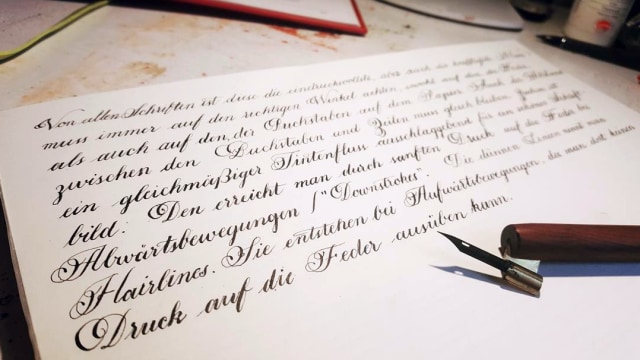 Von allen Schriften ist diese die eindruckvollste, aber auch die
muss immer auf den richtigen Winkel achten, sowohl auf den der
als auch auf den der Buchstaben auf dem Papier. Auch der Abstand
zwischen den Buchstaben und Zeilen muss gleich bleiben. Zudem ist
ein gleichmäßiger Tintenfluss ausschlaggebend für ein schönes Schrift-
bild. Den erreicht man durch sanften Druck auf die Feder bei
Abwärtsbewegungen / "Downstrokes". Die dünnen Linien nennt man
Hairlines. Sie entstehen bei Aufwärtsbewegungen, da man dort keinen
Druck auf die Feder ausüben kann.